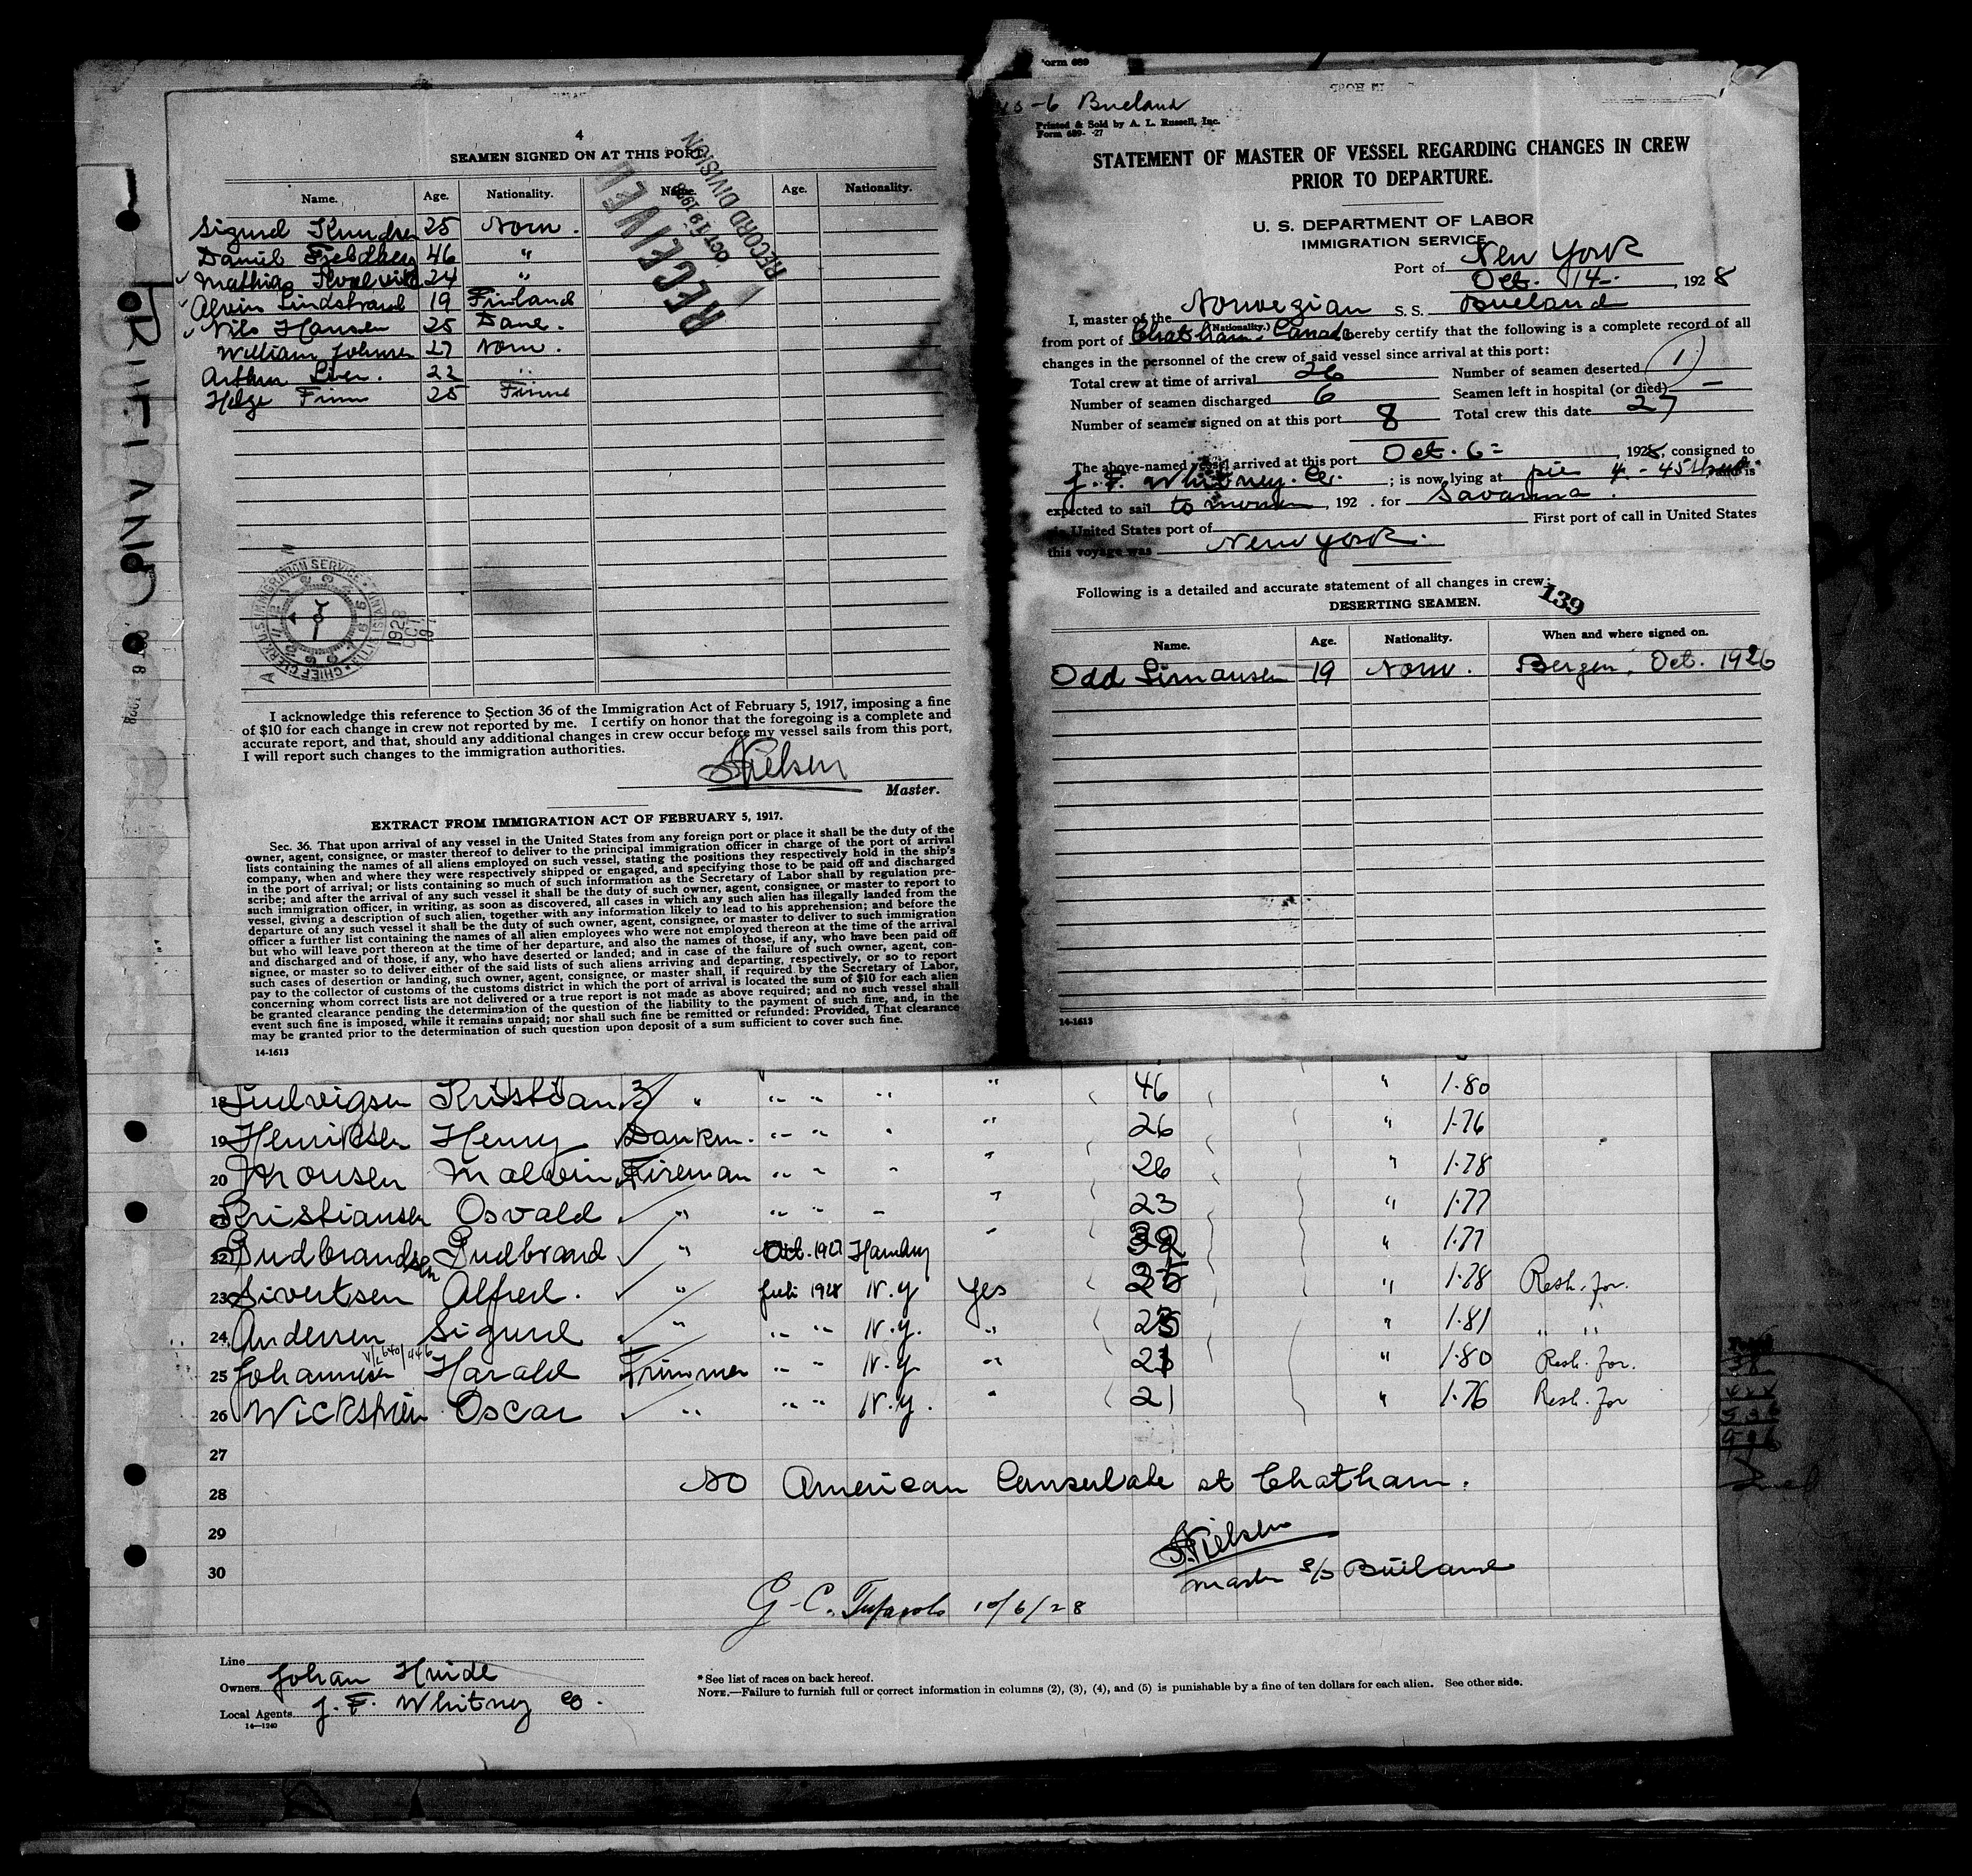 4
SEAMEN SIGNED ON AT THIS PORT
Name. Age. Nationality. Name. Age. Nationality.
Sigurd Knudsen 25 Norw.
Daniel Fjeldberg 46 "
Mathias 24 "
Alvin Lindstrand 19 Finland
Nils Hansen 25 Dane.
William Johnsen 27 Norw.
Arthur 22 "
Helge Finn 25 Finne
RECEIVED
OCT 19 1928
RECORD DIVISION
CHIEF CLERK U.S. IMMIGRATION SERVICE ELLIS ISLAND
1928
OCT
I acknowledge this reference to Section 36 of the Immigration Act of February 5, 1917, imposing a fine
of $10 for each change in crew not reported by me. I certify on honor that the foregoing is a complete and
accurate report, and that, should any additional changes in crew occur before my vessel sails from this port,
I will report such changes to the immigration authorities.
Nielsen
Master.
EXTRACT FROM IMMIGRATION ACT OF FEBRUARY 5, 1917.
Sec. 36. That upon arrival of any vessel in the United States from any foreign port or place it shall be the duty of the
owner, agent, consignee, or master thereof to deliver to the principal immigration officer in charge of the port of arrival
lists containing the names of all aliens employed on such vessel, stating the positions they respectively hold in the ship's
company, when and where they were respectively shipped or engaged, and specifying those to be paid off and discharged
in the port of arrival; or lists containing so much of such information as the Secretary of Labor shall by regulation pre-
scribe; and after the arrival of any such vessel it shall be the duty of such owner, agent, consignee, or master to report to
such immigration officer, in writing, as soon as discovered, all cases in which any such alien has illegally landed from the
vessel, giving a description of such alien, together with any information likely to lead to his apprehension; and before the
departure of any such vessel it shall be the duty of such owner, agent, consignee, or master to deliver to such immigration
officer a further list containing the names of all alien employees who were not employed thereon at the time of the arrival
but who will leave port thereon at the time of her departure, and also the names of those, if any, who have been paid off
and discharged and of those, if any, who have deserted or landed; and in case of the failure of such owner, agent, con-
signee, or master so to deliver either of the said lists of such aliens arriving and departing, respectively, or so to report
such cases of desertion or landing, such owner, agent, consignee, or master shall, if required by the Secretary of Labor,
pay to the collector of customs of the customs district in which the port of arrival is located the sum of $10 for each alien
concerning whom correct lists are not delivered or a true report is not made as above required; and no such vessel shall
be granted clearance pending the determination of the question of the liability to the payment of such fine, and, in the
event such fine is imposed, while it remains unpaid; nor shall such fine be remitted or refunded: Provided, That clearance
may be granted prior to the determination of such question upon deposit of a sum sufficient to cover such fine.
14-1613
Form 689
-6 Bueland
Printed & Sold by A. L. Russell, Inc.
Form 689- -27
STATEMENT OF MASTER OF VESSEL REGARDING CHANGES IN CREW
PRIOR TO DEPARTURE.
U. S. DEPARTMENT OF LABOR
IMMIGRATION SERVICE
Port of New York
Oct. 14- , 1928
I, master of the Norwegian S. S. Bueland
(Nationality.)
from port of Chatham, Canada hereby certify that the following is a complete record of all
changes in the personnel of the crew of said vessel since arrival at this port:
Total crew at time of arrival 26 Number of seamen deserted 1
Number of seamen discharged 6 Seamen left in hospital (or died) -
Number of seamen signed on at this port 8 Total crew this date 27
The above-named vessel arrived at this port Oct. 6 = , 1928, consigned to
J. F. Whitney. Co. ; is now lying at pier 4 - 45 and is
expected to sail to morrow , 192 . for Savanna .
via United States port of First port of call in United States
this voyage was New York.
Following is a detailed and accurate statement of all changes in crew:
139
DESERTING SEAMEN.
Name. Age. Nationality. When and where signed on.
Odd Simonsen 19 Norw. Bergen. Oct. 1926
14-1613
18 Ludvigsen Kristian 3/ " " " " " 46 " 1.80
19 Henriksen Henry Dankm. " " " " 26 " 1.76
20 Monsen Malvin Fireman " " " " 26 " 1.78
21 Kristiansen Osvald " " " " 23 " 1.77
22 Gudbrandsen Gudbrand " Oct. 1927 Hamburg " 32 " 1.77
23 Sivertsen Alfred. " Juli 1928 N.Y Yes 25 " 1.78 Resh. for.
24 Andersen Sigurd " " " N.Y. " 25 " 1.81 " "
25 Johannesen Harald Trimmer " " N.Y. " 21 " 1.80 Resh. for.
26 Wickstrøm Oscar " " " N.Y. " 21 " 1.76 Resh. for
27
28
29
30
No American Consulate at Chatham.
Nielsen
Master s/s Bueland
G. C. 10/6/28
Line
Owners Johan Hvide
Local Agents J. F. Whitney Co.
14—1240
*See list of races on back hereof.
NOTE.—Failure to furnish full or correct information in columns (2), (3), (4), and (5) is punishable by a fine of ten dollars for each alien. See other side.